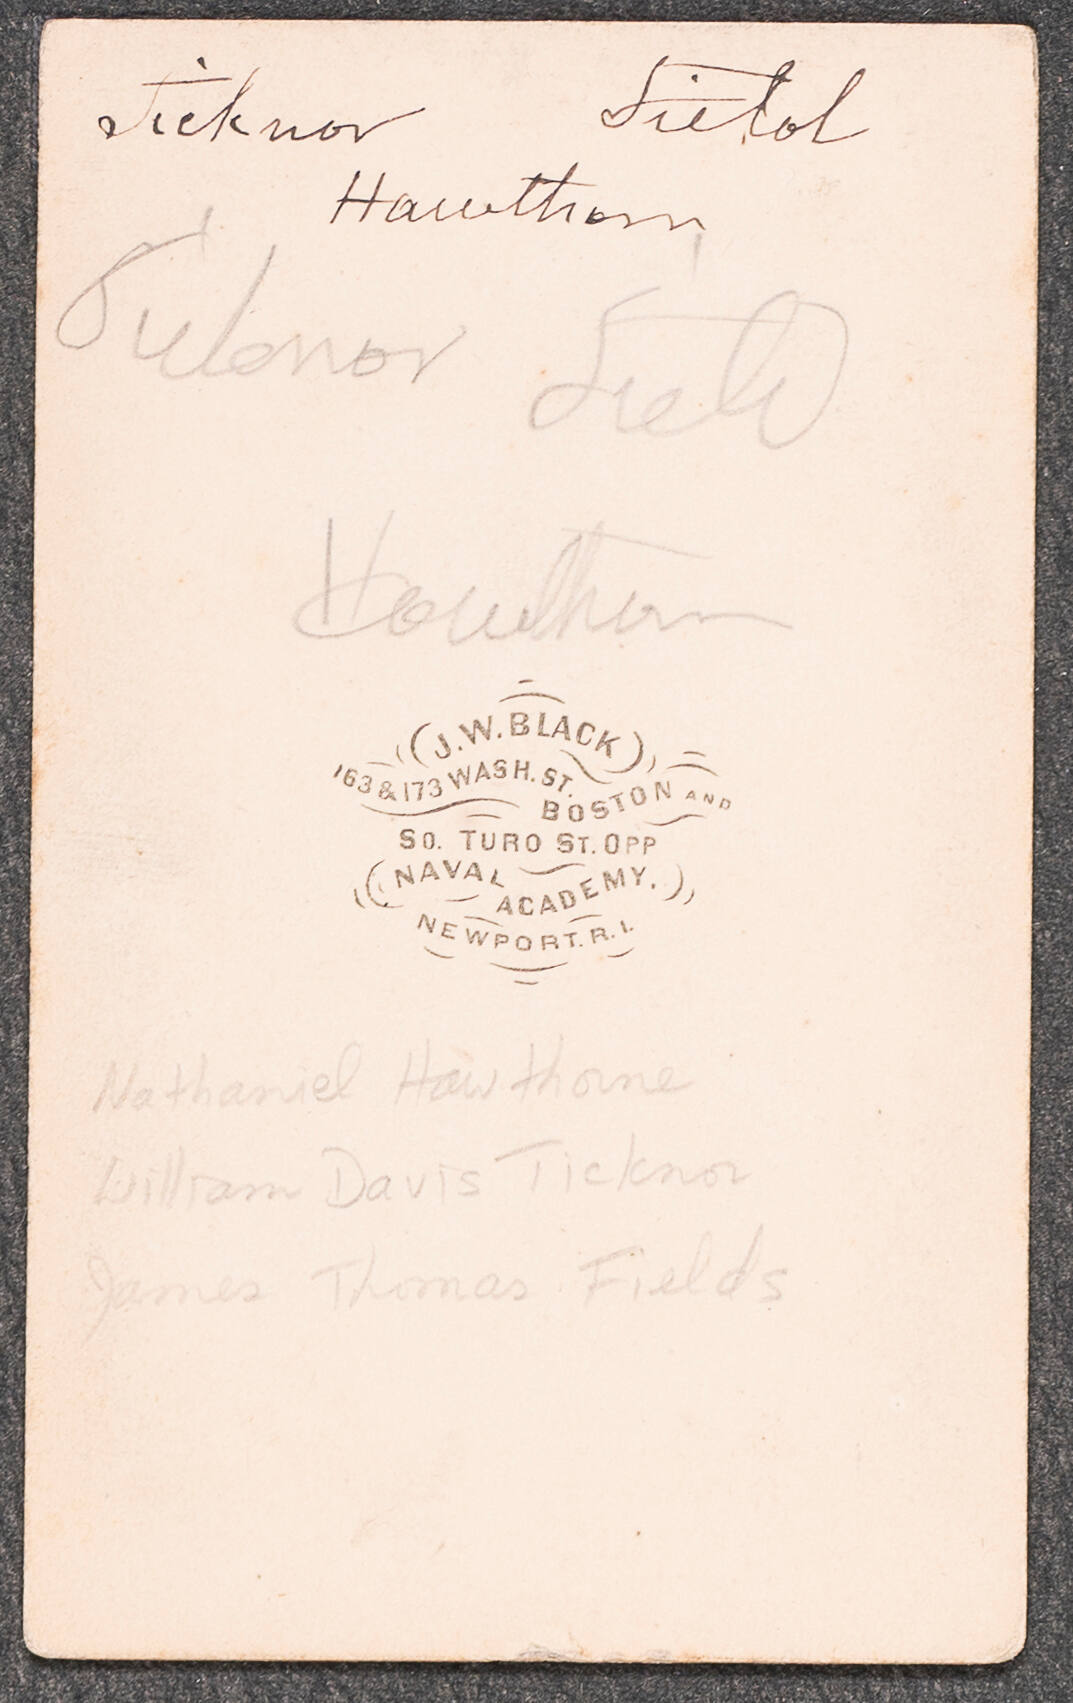 Ticknor Field
Hawthorn
Ticknor Field
Hawthorn
J. W. BLACK
163 & 173 WASH. ST.
BOSTON AND
SO. TURO ST. OPP
NAVAL
ACADEMY.
NEWPORT. R. I.
Nathaniel Hawthorne
William Davis Ticknor
James Thomas Fields